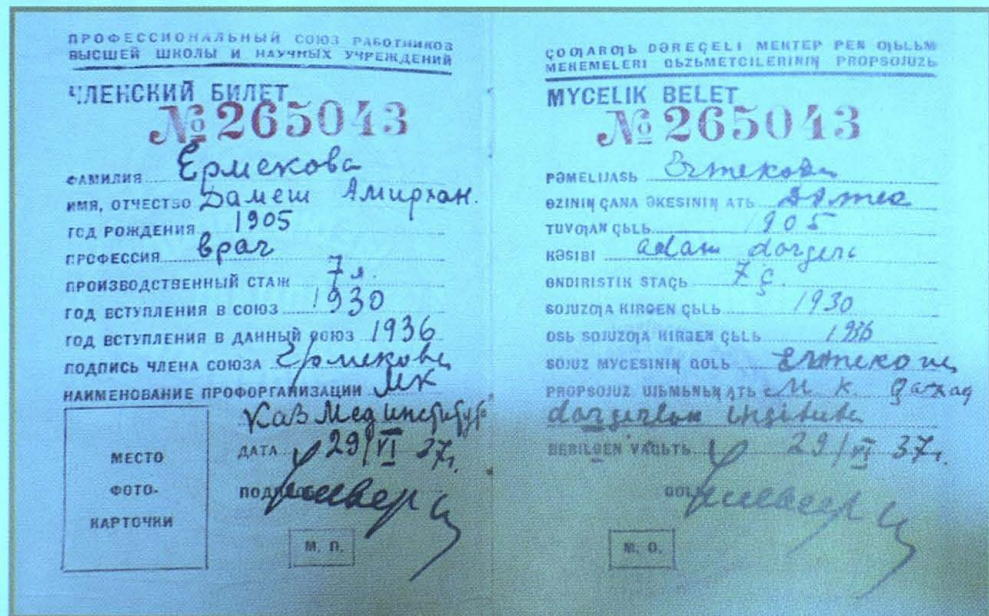 ПРОФЕССИОНАЛЬНЫЙ СОЮЗ РАБОТНИКОВ
ВЫСШЕЙ ШКОЛЫ И НАУЧНЫХ УЧРЕЖДЕНИЙ
ЧЛЕНСКИЙ БИЛЕТ
№ 265043
ФАМИЛИЯ Ермекова
ИМЯ, ОТЧЕСТВО Дамеш Амирхан.
ГОД РОЖДЕНИЯ 1905
ПРОФЕССИЯ врач
ПРОИЗВОДСТВЕННЫЙ СТАЖ 7 л.
ГОД ВСТУПЛЕНИЯ В СОЮЗ 1930
ГОД ВСТУПЛЕНИЯ В ДАННЫЙ СОЮЗ 1936
ПОДПИСЬ ЧЛЕНА СОЮЗА Ермекова
НАИМЕНОВАНИЕ ПРОФОРГАНИЗАЦИИ МК
КазМединститут
ДАТА 29/VI 37г.
ПОДПИСЬ
МЕСТО
ФОТО-
КАРТОЧКИ
М. П.
ÇOƢARƢЬ DƏREÇELI MEKTEP PEN ƢЬLЬM
MEKEMELERI QЬZЬMETCILERINIꞐ PROPSOJUZЬ
MYCELIK BELET
№ 265043
PƏMELIJASЬ
ɵZINIꞐ ÇANA ƏKESINIꞐ ATЬ
TUVƢAN ÇЬLЬ 1905
KƏSIBI adam
ɵNDIRISTIK STAÇЬ 7 ç.
SOJUZƢA KIRGEN ÇЬLЬ 1930
OSЬ SOJUZƢA KIRGEN ÇЬLЬ 1936
SOJUZ MYCESINIꞐ QOLЬ
PROPSOJUZ UJЬMЬNЬꞐ ATЬ M. K. Qazaq
BERILGEN VAQЬTЬ 29/VI 37г.
QOLЬ
M. O.